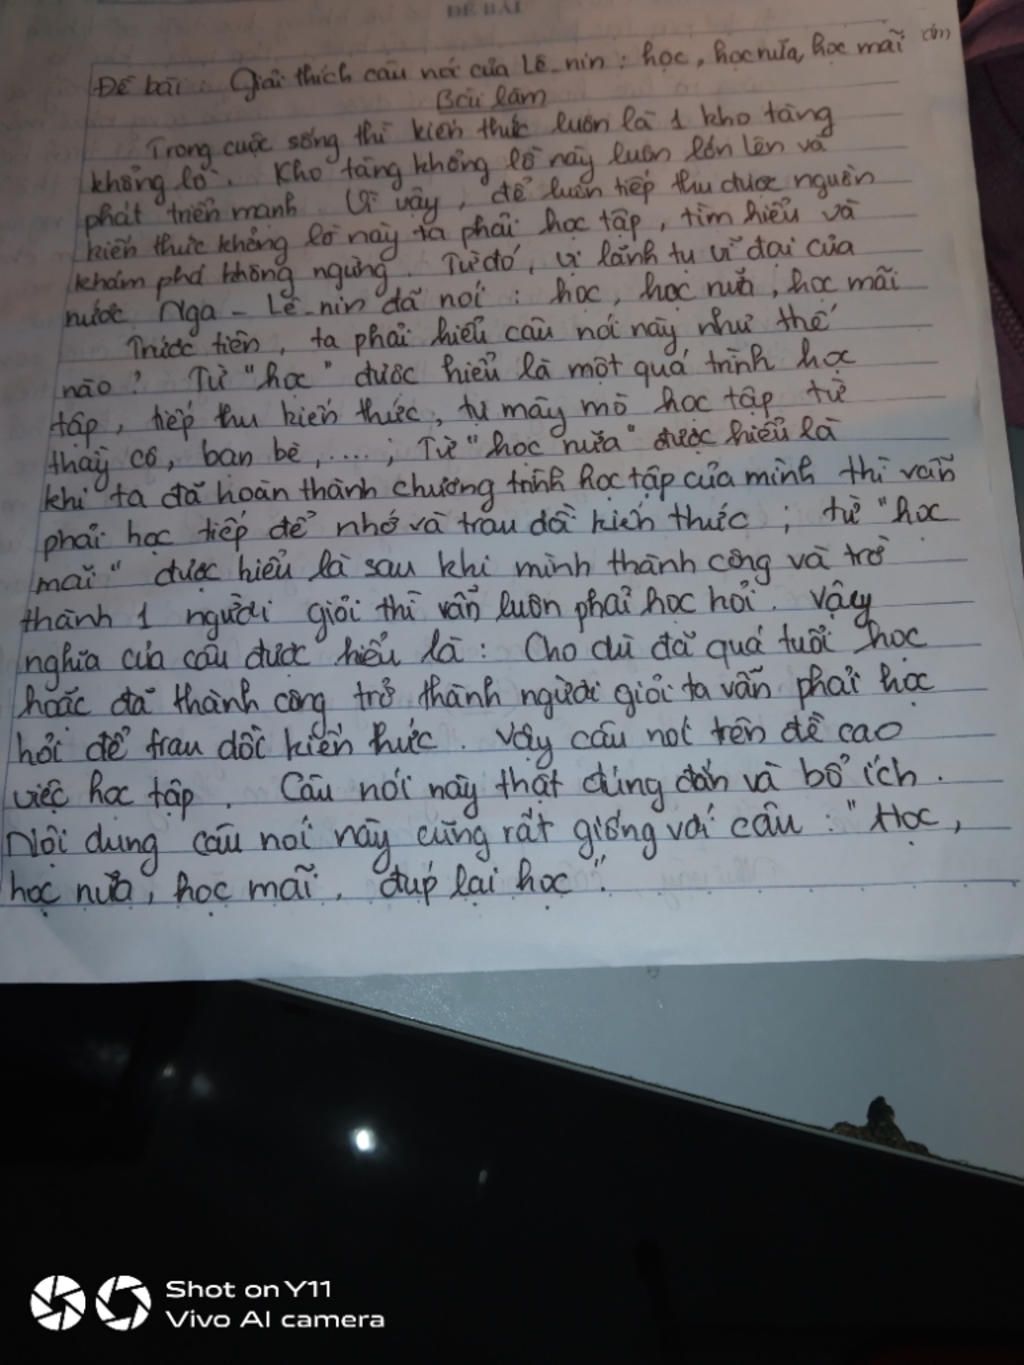 ĐỀ BÀI
Đề bài : Giải thích câu nói của Lê-nin : học, học nữa, học mãi
Bài làm
Trong cuộc sống thì kiến thức luôn là 1 kho tàng
khổng lồ. Kho tàng khổng lồ này luôn lớn lên và
phát triển mạnh. Vì vậy, để luôn tiếp thu được nguồn
kiến thức khổng lồ này ta phải học tập, tìm hiểu và
khám phá không ngừng. Từ đó, vị lãnh tụ vĩ đại của
nước Nga - Lê-nin đã nói : học, học nữa, học mãi
Trước tiên, ta phải hiểu câu nói này như thế
nào? Từ "học" được hiểu là một quá trình học
tập, tiếp thu kiến thức, tự mày mò học tập từ
thầy cô, bạn bè, ....; Từ "học nữa" được hiểu là
khi ta đã hoàn thành chương trình học tập của mình thì vẫn
phải học tiếp để nhớ và trau dồi kiến thức ; từ "học
mãi" được hiểu là sau khi mình thành công và trở
thành 1 người giỏi thì vẫn luôn phải học hỏi. Vậy
nghĩa của câu được hiểu là : Cho dù đã quá tuổi học
hoặc đã thành công trở thành người giỏi ta vẫn phải học
hỏi để trau dồi kiến thức. Vậy câu nói trên đề cao
việc học tập. Câu nói này thật đúng đắn và bổ ích.
Nội dung câu nói này cũng rất giống với câu : "Học,
học nữa, học mãi, đúp lại học".
Shot on Y11
Vivo AI camera